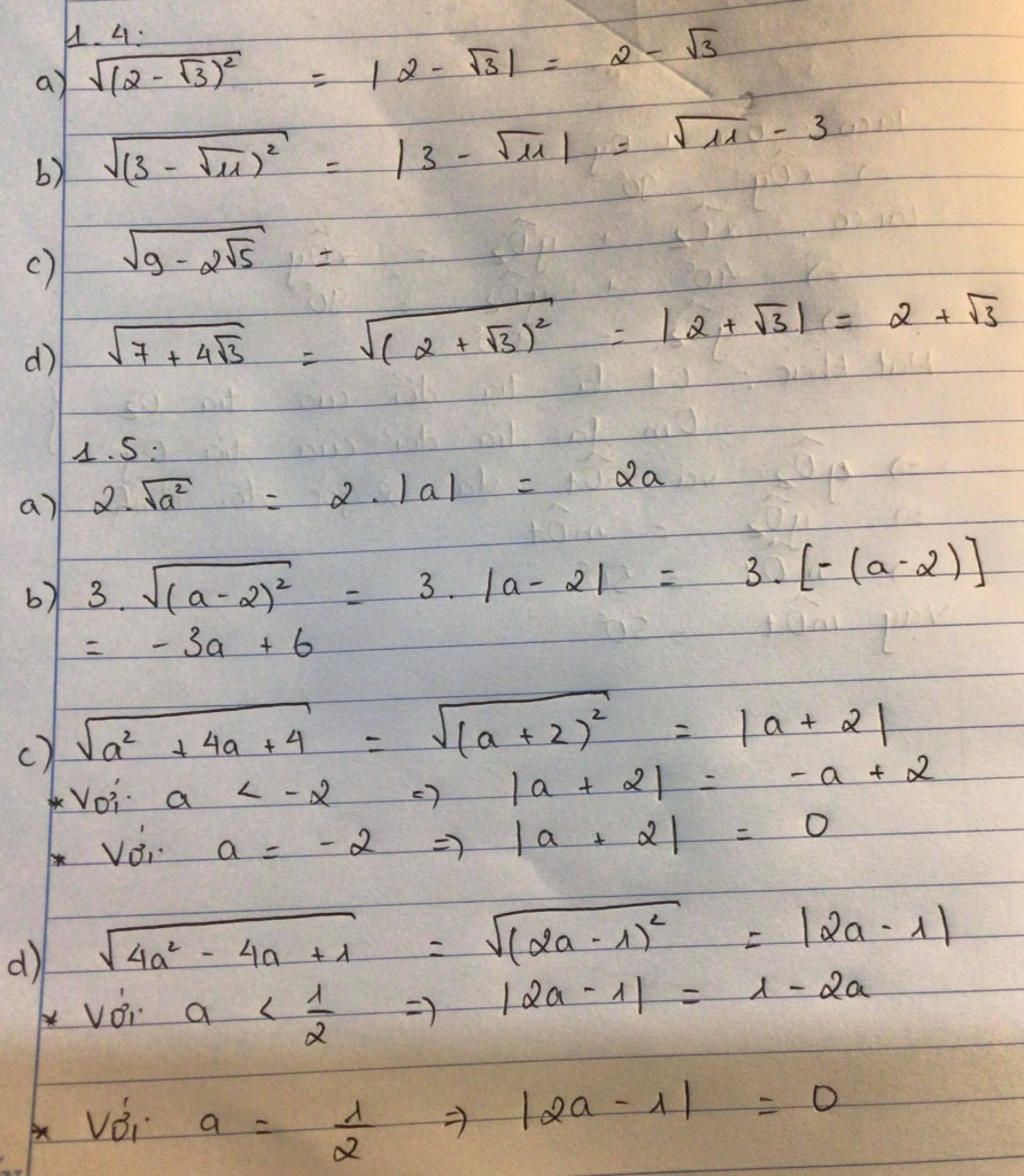 1.4:
a) √(2 - √3)² = |2 - √3| = 2 - √3
b) √(3 - √11)² = |3 - √11| = √11 - 3
c) √9 - 2√5 =
d) √7 + 4√3 = √(2 + √3)² = |2 + √3| = 2 + √3
1.5:
a) 2.√a² = 2.|a| = 2a
b) 3.√(a-2)² = 3.|a-2| = 3.[-(a-2)]
= -3a + 6
c) √a² + 4a + 4 = √(a + 2)² = |a + 2|
* Với a < -2 => |a + 2| = -a + 2
* Với a = -2 => |a + 2| = 0
d) √4a² - 4a + 1 = √(2a - 1)² = |2a - 1|
* Với a < 1/2 => |2a - 1| = 1 - 2a
* Với a = 1/2 => |2a - 1| = 0